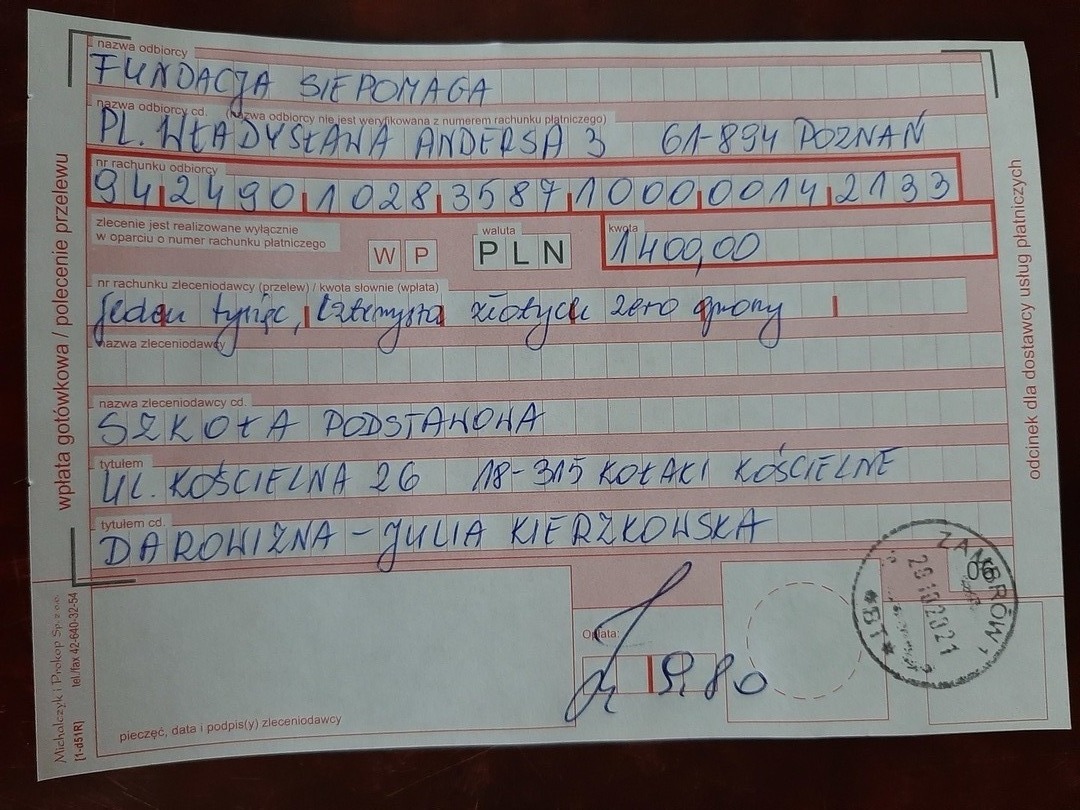 nazwa odbiorcy
FUNDACJA SIEPOMAGA
nazwa odbiorcy cd. (Nazwa odbiorcy nie jest weryfikowana z numerem rachunku płatniczego)
PL. WŁADYSŁAWA ANDERSA 3 61-894 POZNAŃ
nr rachunku odbiorcy
94 2490 1028 3587 1000 0014 2133
zlecenie jest realizowane wyłącznie
w oparciu o numer rachunku płatniczego
W P
waluta
PLN
kwota
1400,00
nr rachunku zleceniodawcy (przelew) / kwota słownie (wpłata)
jeden tysiąc, czterysta złotych zero groszy
nazwa zleceniodawcy
nazwa zleceniodawcy cd.
SZKOŁA PODSTAWOWA
tytułem
UL. KOŚCIELNA 26 18-315 KOŁAKI KOŚCIELNE
tytułem cd.
DAROWIZNA - JULIA KIERZKOWSKA
Opłata:
9,80
pieczęć, data i podpis(y) zleceniodawcy
wpłata gotówkowa / polecenie przelewu
odcinek dla dostawcy usług płatniczych
Michalczyk i Prokop Sp. z o.o.
tel./fax 42-640-32-54
[1-d51R]
ZAMBRÓW 1
06